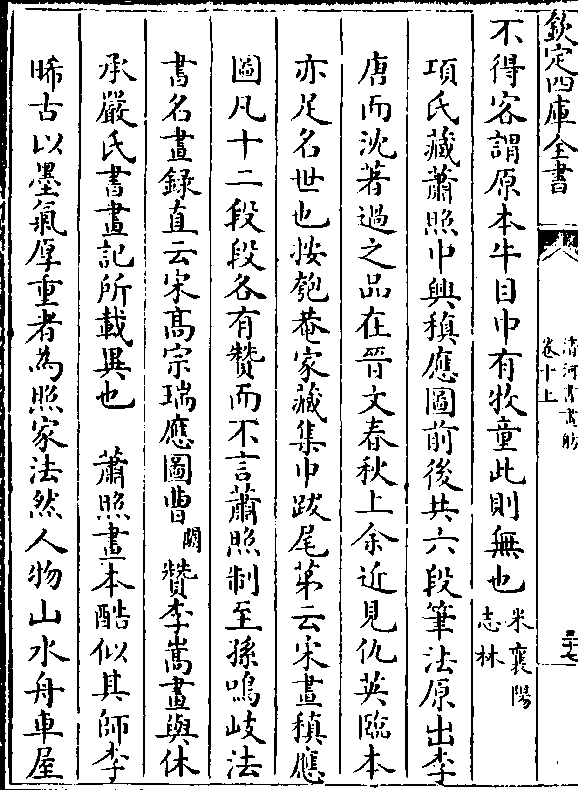 欽定四庫全書
清河書畫舫
卷十上
三十七
不得客謂原本牛目中有牧童此則無也米襄陽志林
項氏藏蕭照中興稹應圖前後共六段筆法原出李
唐而沈著過之品在晉文春秋上余近見仇英臨本
亦足名世也按匏菴家藏集中跋尾第云宋畫稹應
圖凡十二段段各有贊而不言蕭照制至孫鳴岐法
書名畫録直云宋髙宗瑞應圖曹闕贊李嵩畫與休
承嚴氏書畫記所載異也　蕭照畫本酷似其師李
晞古以墨氣厚重者為照家法然人物山水舟車屋